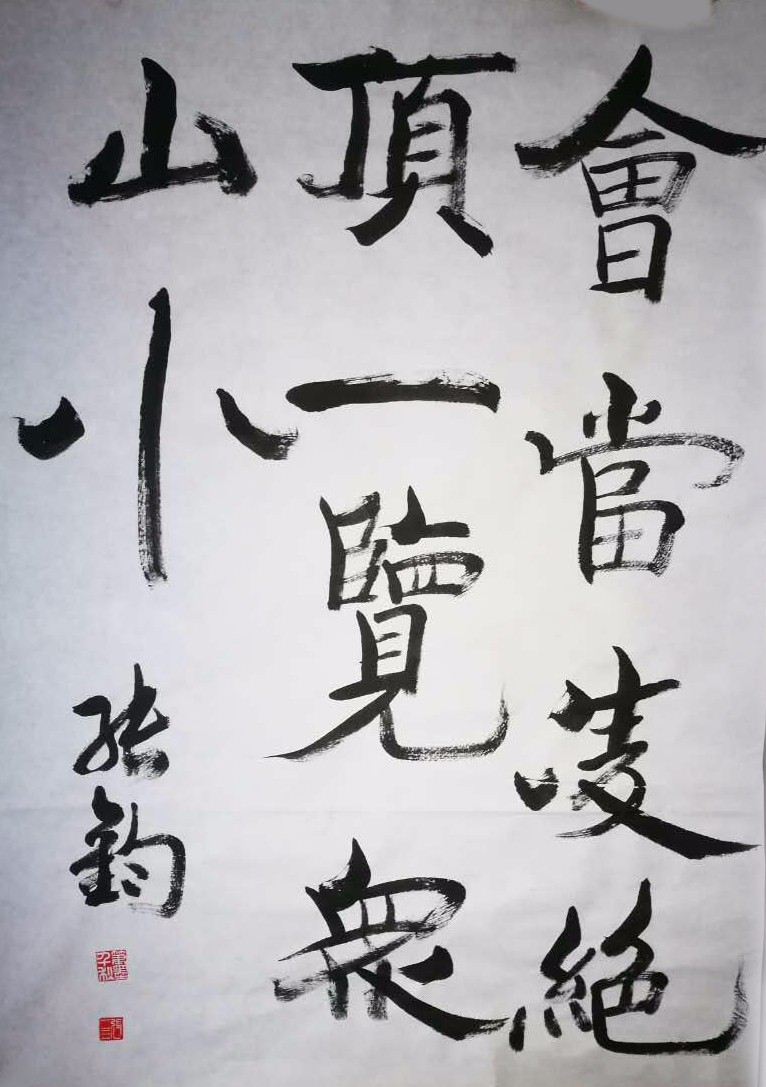 會當凌絕
頂一覽眾
山小
張鈞